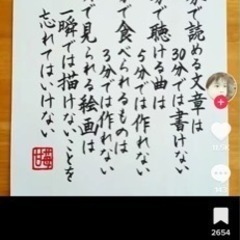 分で読める文章は
30分では書けない
分で聴ける曲は
5分では作れない
で食べられるものは
3分では作れない
で見られる絵画は
一瞬では描けないことを
忘れてはいけない
2654